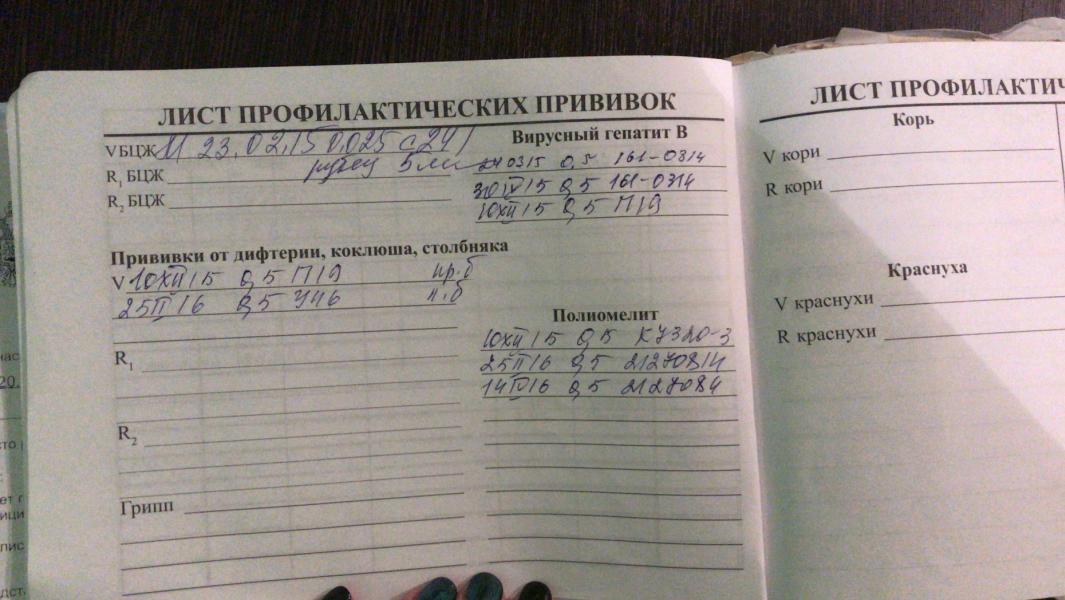 ЛИСТ ПРОФИЛАКТИЧЕСКИХ ПРИВИВОК
V БЦЖ М 23.02.15 0,025 с 241
рубец 5мм
R₁ БЦЖ
R₂ БЦЖ
Вирусный гепатит В
0315 0,5 161-0314
30 IV 15 0,5 161-0314
10 XII 15 0,5 П19
Прививки от дифтерии, коклюша, столбняка
V 10 XII 15 0,5 П19 пр.б
25 II 16 0,5 У46 п.б
R₁
R₂
Грипп
Полиомелит
10 XII 15 0,5
25 II 16 0,5 21270814
14 IV 16 0,5 2127084
ЛИСТ ПРОФИЛАКТИЧ
Корь
V кори
R кори
Краснуха
V краснухи
R краснухи